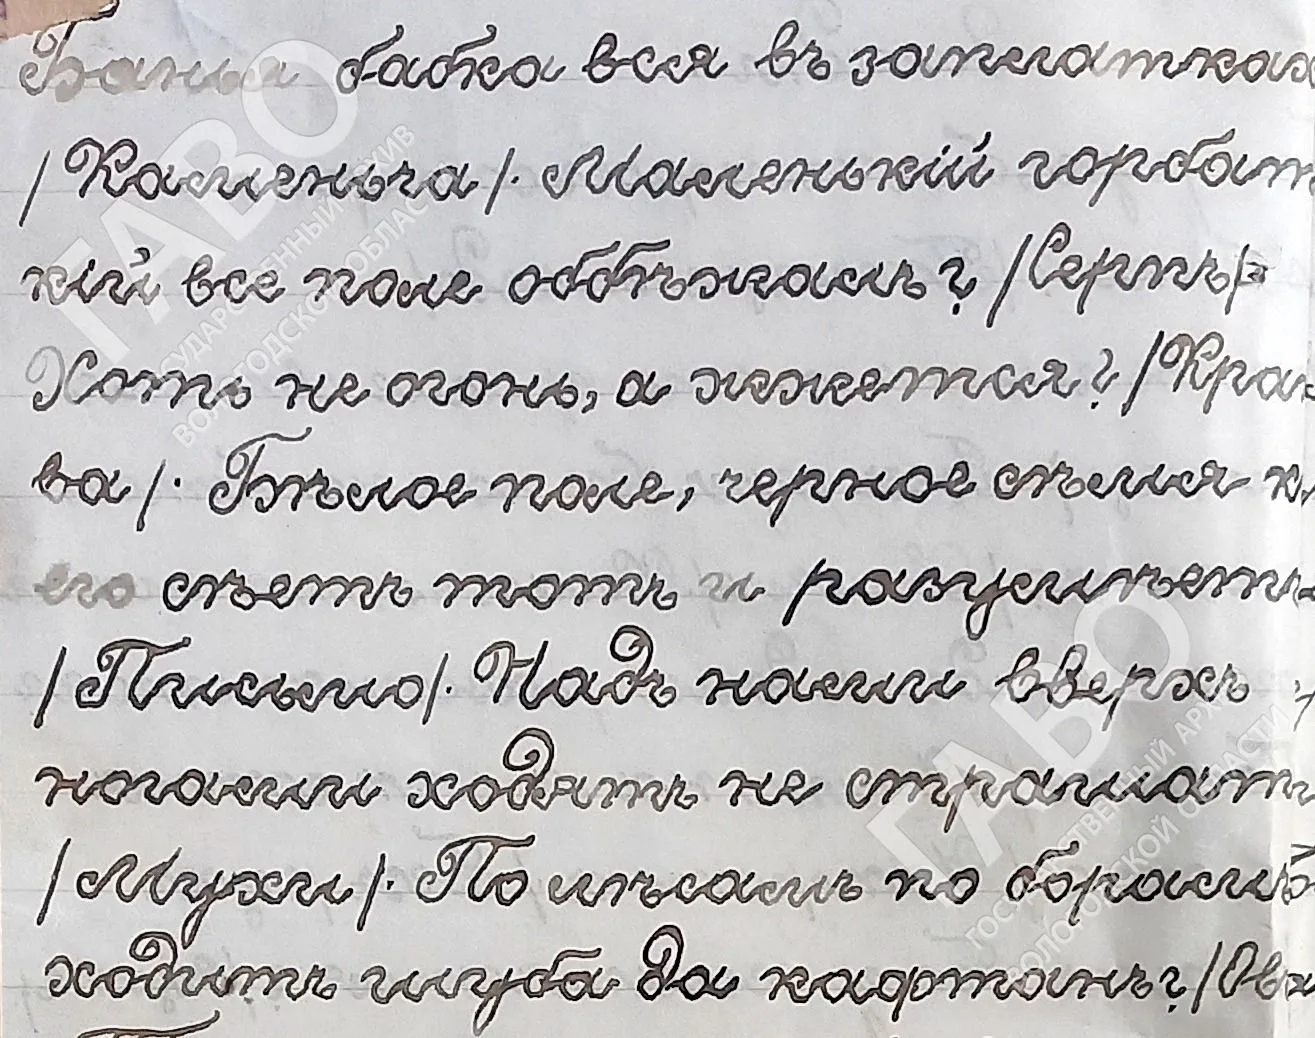 Банья бабка вся въ запелатках
/Каменьча/. Маленькій горбат
кій все поле оббѣжалъ? /Серпъ/
Хоть не огонь, а жежется? /Кра
ва/. Бѣлое поле, черное сѣмя к
его сѣетъ тотъ и разумѣетъ
/Письмо/. Надъ нами вверхъ
ногами ходятъ не страшат
/Мухи/. По лѣсамъ по борами
ходитъ шуба да кафтанъ? /Ов
ГАВО
ГОСУДАРСТВЕННЫЙ АРХИВ
ВОЛОГОДСКОЙ ОБЛАСТИ
ГАВО
ГОСУДАРСТВЕННЫЙ АРХИВ
ВОЛОГОДСКОЙ ОБЛАСТИ